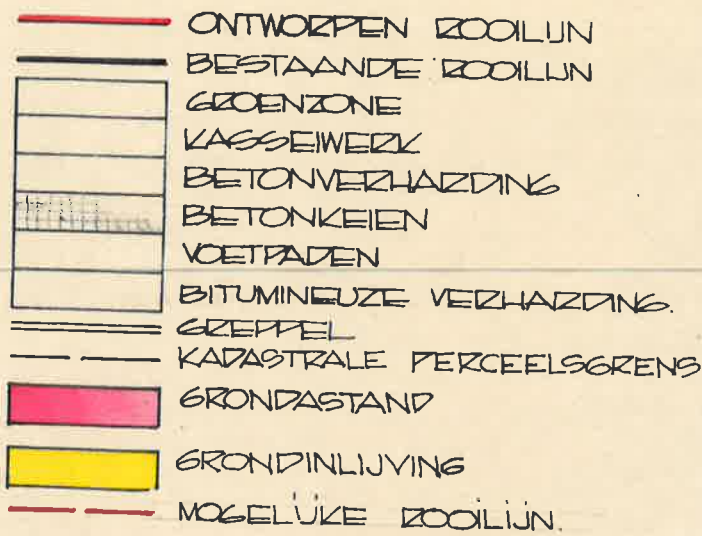 ONTWORPEN ROOILIJN
BESTAANDE ROOILIJN
GROENZONE
KASSEIWERK
BETONVERHARDING
BETONKEIEN
VOETPADEN
BITUMINEUZE VERHARDING.
GREPPEL
KADASTRALE PERCEELSGRENS
GRONDASTAND
GRONDINLIJVING
MOGELIJKE ROOILIJN.